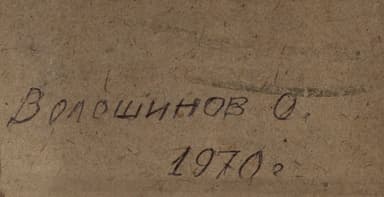 Волошинов О.
1970г